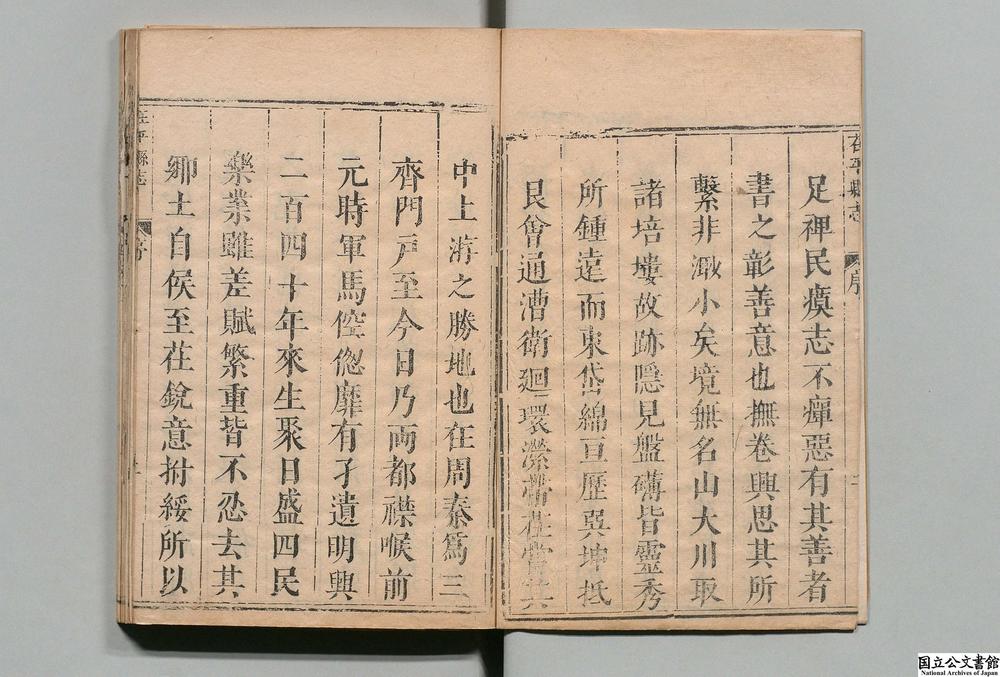 茌平縣志
序
足裨民瘼志不癉惡有其善者
書之彰善意也撫卷興思其所
繫非渺小矣境無名山大川取
諸培塿故跡隱見盤礴皆靈秀
所鍾遠而東岱綿亘歷巽坤抵
艮會通漕衛廻環瀠
中上游之勝地也在周秦爲三
齊門戸至今日乃兩都襟喉前
元時軍馬倥偬靡有孑遺明興
二百四十年來生聚日盛四民
樂業雖差賦繁重皆不忍去其
鄉土自候至茌銳意拊綏所以
茌平縣志
序
国立公文書館
National Archives of Japan